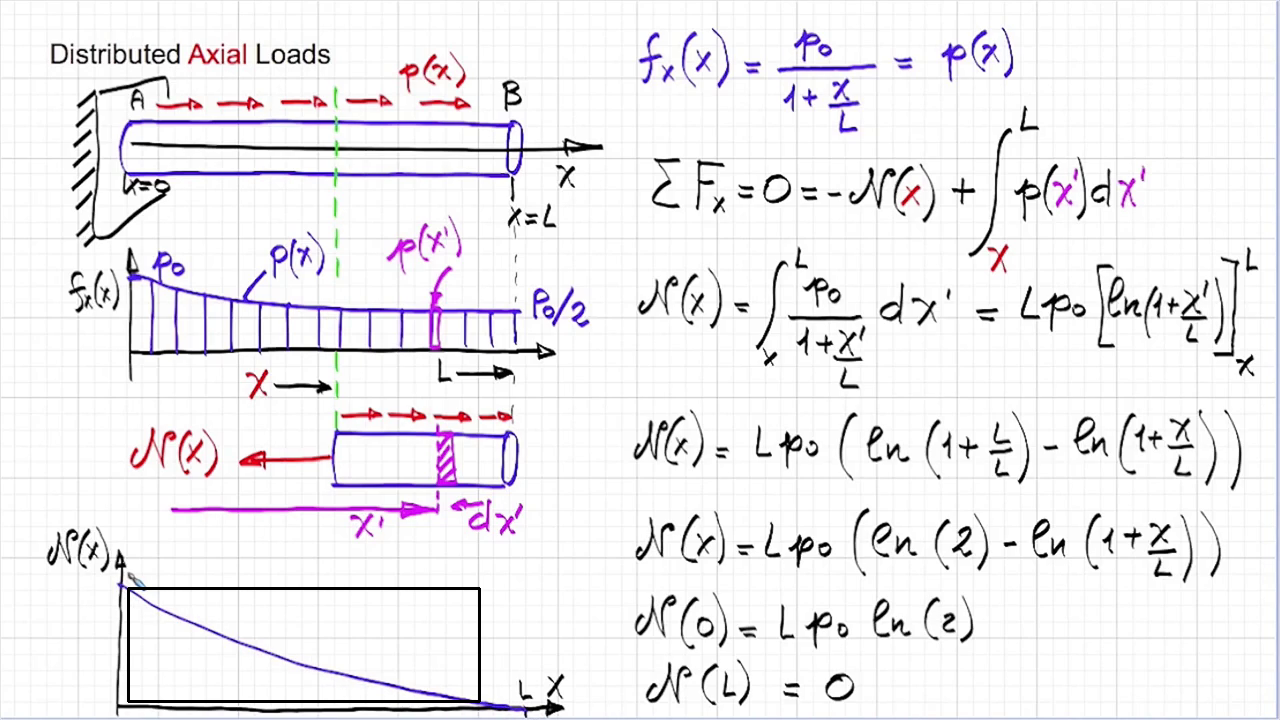 Distributed Axial Loads
p(x)
A
B
x=0
x
x=L
f_x(x)
p₀
p(x)
p(x')
P₀/2
x
L
N(x)
x'
dx'
N(x)
L x
f_x(x) = p₀/(1+x/L) = p(x)
∑F_x = 0 = -N(x) + ∫_x^L p(x')dx'
N(x) = ∫_x^L p₀/(1+x'/L) dx' = Lp₀[ln(1+x'/L)]_x^L
N(x) = Lp₀(ln(1+L/L) - ln(1+x/L))
N(x) = Lp₀(ln(2) - ln(1+x/L))
N(0) = Lp₀ ln(2)
N(L) = 0